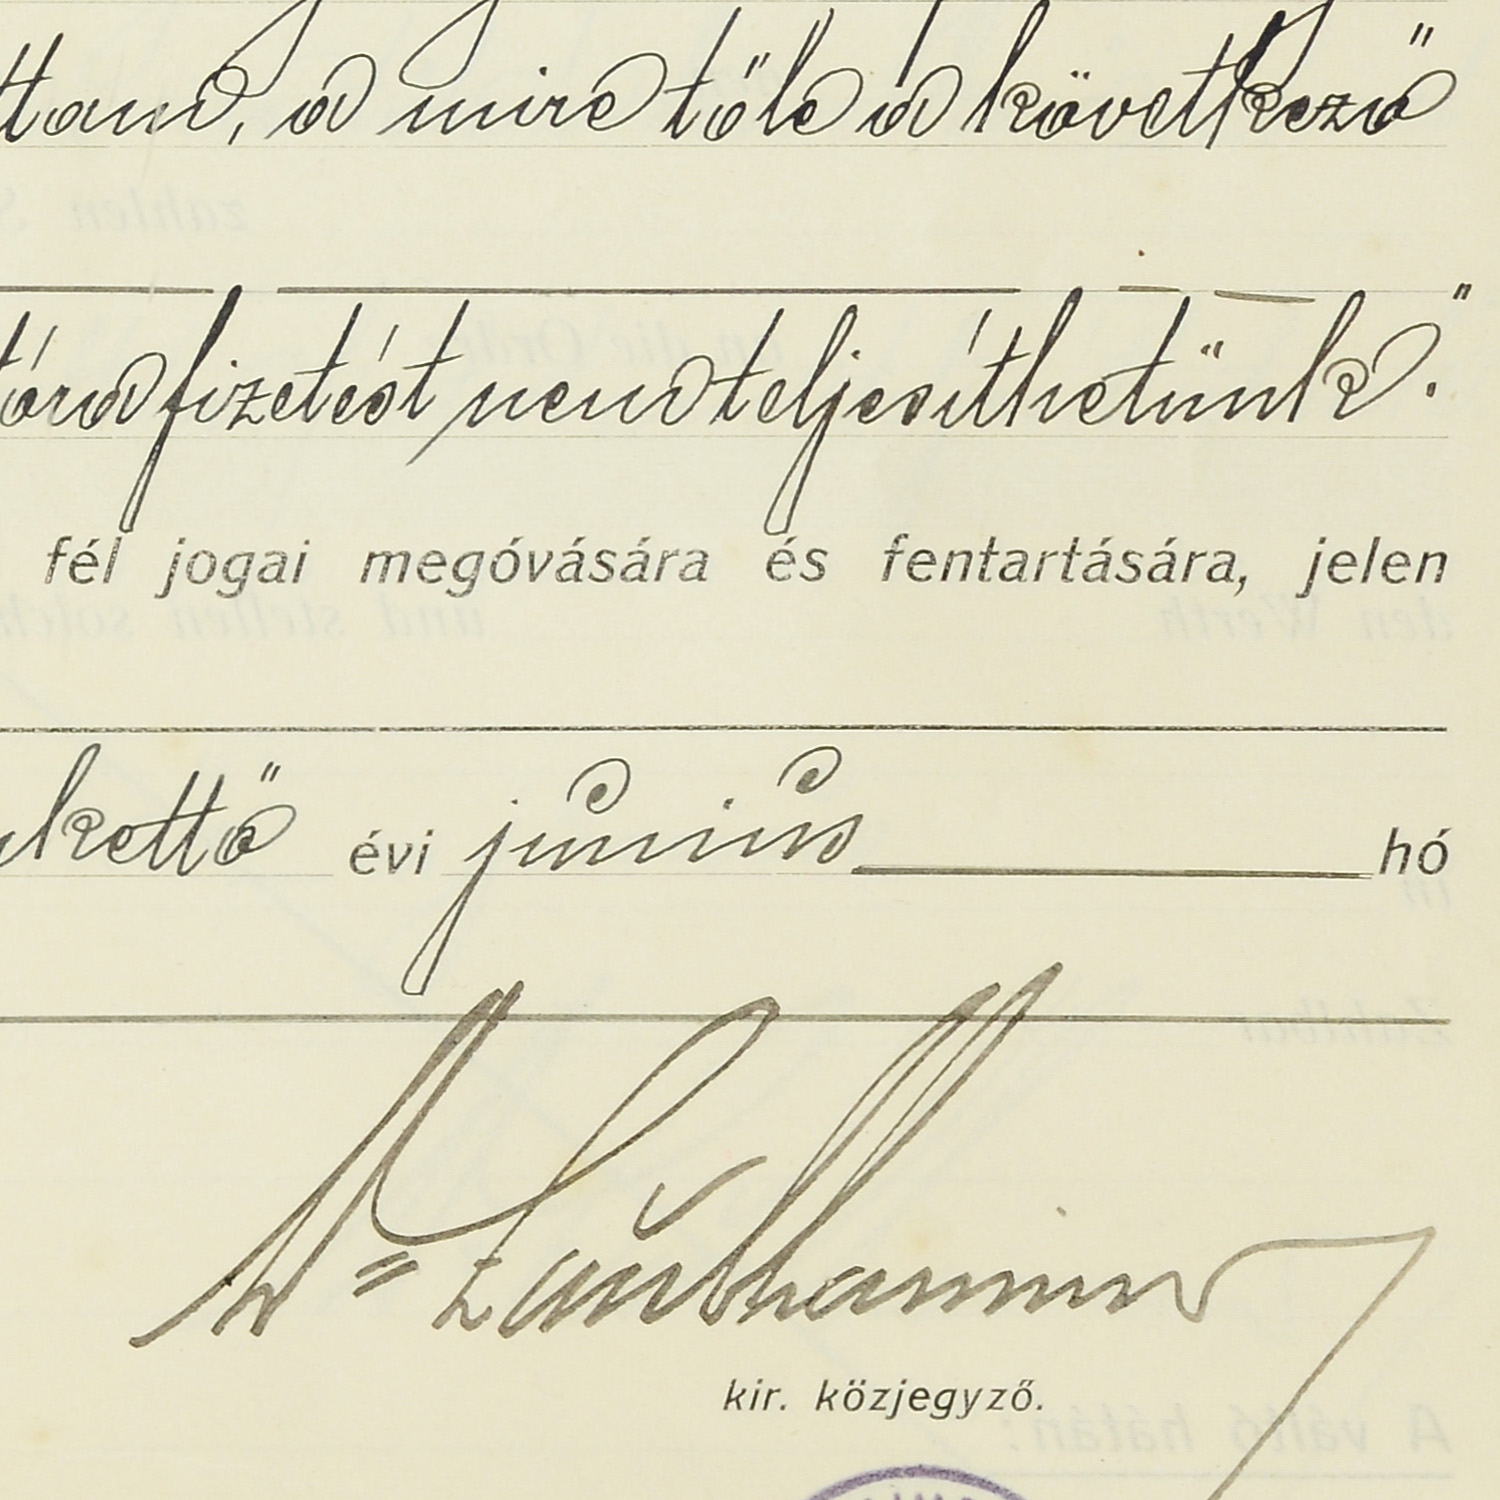 a mire tőle a következő
fizetést nem teljesíthetünk."
fél jogai megóvására és fentartására, jelen
kettő évi június hó
kir. közjegyző.